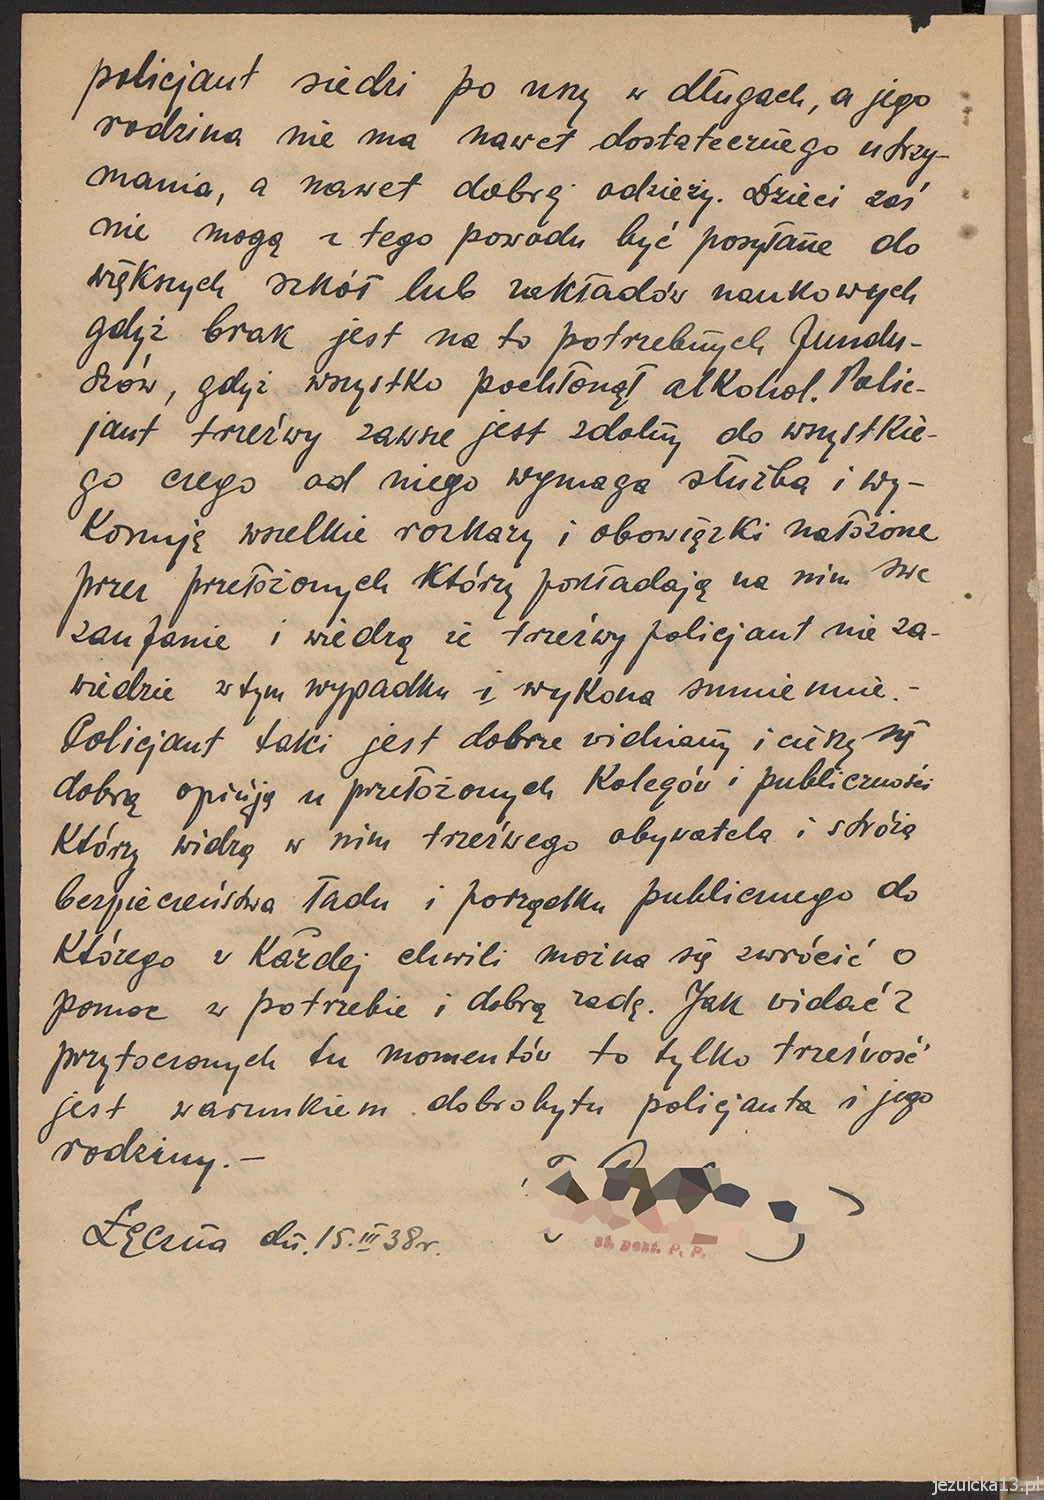 policjant siedzi po uszy w długach, a jego
rodzina nie ma nawet dostatecznego utrzy-
mania, a nawet dobrej odzieży. Dzieci zaś
nie mogą z tego powodu być posyłane do
większych szkół lub zakładów naukowych
gdyż brak jest na to potrzebnych fundu-
szów, gdyż wszystko pochłonął alkohol. Polic-
jant trzeźwy zawsze jest zdolny do wszystkie-
go czego od niego wymaga służba i wy-
konują wszelkie rozkazy i obowiązki nałożone
przez przełożonych którzy pokładają na nim swe
zaufanie i wiedzą że trzeźwy policjant nie za-
wiedzie w tym wypadku i wykona sumiennie.-
Policjant taki jest dobrze widziany i cieszy się
dobrą opinją u przełożonych kolegów i publiczności
którzy widzą w nim trzeźwego obywatela i stróża
bezpieczeństwa ładu i porządku publicznego do
którego w każdej chwili można się zwrócić o
pomoc w potrzebie i dobrą radę. Jak widać z
przytoczonych tu momentów to tylko trzeźwość
jest warunkiem dobrobytu policjanta i jego
rodziny.-
Łęczna dn. 15.III 38r.
st. post. P. P.
jezuicka13.pl